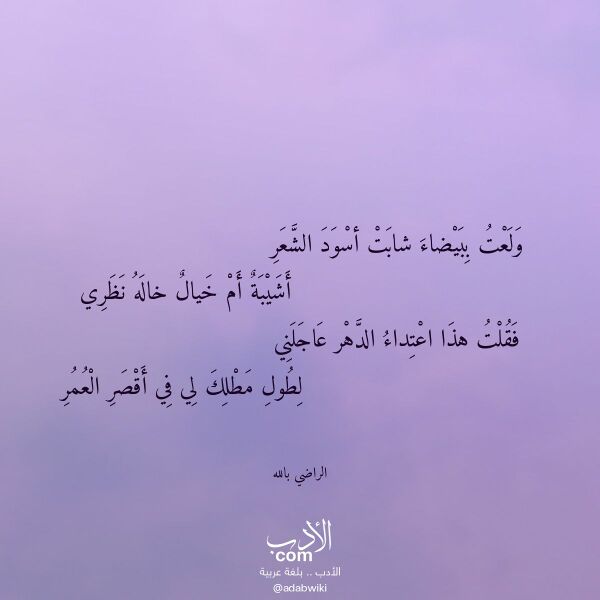 وَلَعْتُ بِبَيْضاءَ شابَتْ أسْوَدَ الشَّعَرِ
أَشَيْبَةٌ أَمْ خَيالٌ خالَهُ نَظَرِي
فَقُلْتُ هذَا اعْتِداءُ الدَّهْر عَاجَلَنِي
لِطُولِ مَطْلِكَ لِي فِي أَقْصَرِ الْعُمُرِ
الراضي بالله
الأدب
com
الأدب .. بلغة عربية
@adabwiki